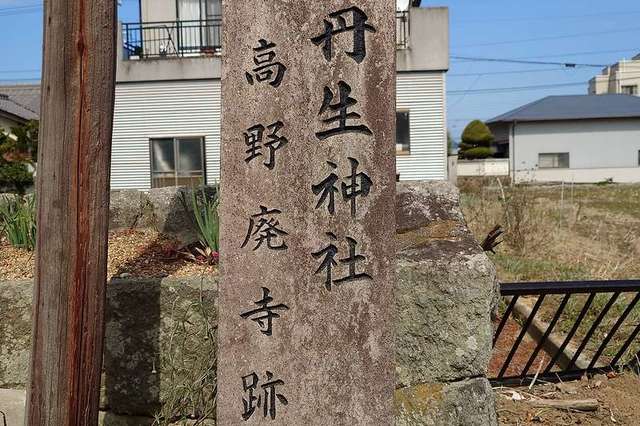 丹生神社
高野廃寺跡